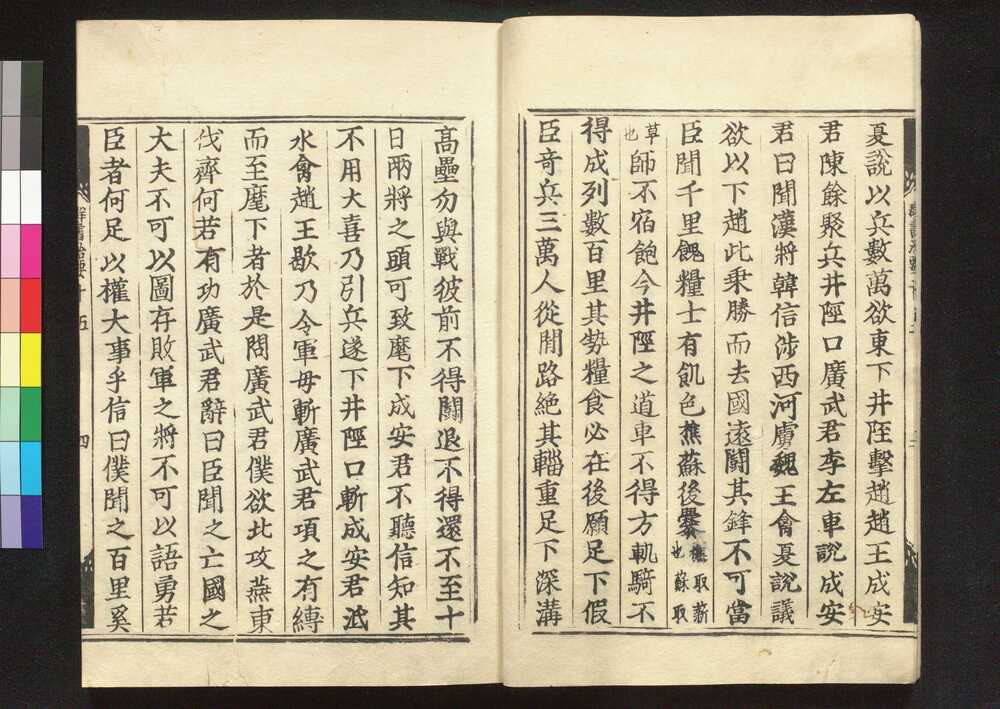 夏說以兵數萬欲東下井陘擊趙趙王成安
君陳餘聚兵井陘口廣武君李左車說成安
君曰聞漢將韓信涉西河虜魏王禽夏說議
欲以下趙此乘勝而去國遠鬪其鋒不可當
臣聞千里餽糧士有飢色樵蘇後爨樵取薪也蘇取
草也師不宿飽今井陘之道車不得方軌騎不
得成列數百里其勢糧食必在後願足下假
臣奇兵三萬人從閒路絶其輜重足下深溝
高壘勿與戰彼前不得鬪退不得還不至十
日兩將之頭可致麾下成安君不聽信知其
不用大喜乃引兵遂下井陘口斬成安君泜
水禽趙王歇乃令軍毋斬廣武君項之有縛
而至麾下者於是問廣武君僕欲北攻燕東
伐齊何若有功廣武君辭曰臣聞之亡國之
大夫不可以圖存敗軍之將不可以語勇若
臣者何足以權大事乎信曰僕聞之百里奚
群書治要十五
四